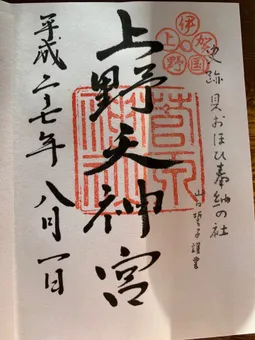 伊賀国
上野
貝おほひ奉納の社
山口誓子謹書
菅原
神社
上野天神宮
平成二七年八月一日